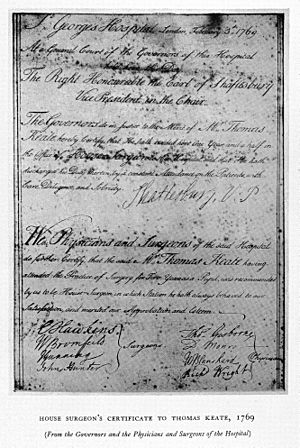 St. Georges Hospital, London February 3d. 1769
At a General Court of the Governors of this Hospital
held here this Day
The Right Honourable the Earl of Shaftesbury
Vice President, in the Chair.
The Governors do in Justice to the Merit of Mr. Thomas
Keate hereby Certify, that He hath served One Year and a half in
the Office of House Surgeon
discharged his Duty therein by a constant Attendance on the Patients with
Care, Diligence, and Sobriety.
Shaftesbury V. P
We, Physicians and Surgeons of the said Hospital
do further Certify, that the said Mr. Thomas Keate having
attended the Practice of Surgery for Two Years a Pupil, was recommended
by us to be House Surgeon, in which Station he hath always behaved to our
Satisfaction, and merited our Approbation and Esteem.
C Hawkins
W Bromfield
John Hunter
Surgeons
D Monro
Rich Wright
Physicians
HOUSE SURGEON'S CERTIFICATE TO THOMAS KEATE, 1769
(From the Governors and the Physicians and Surgeons of the Hospital)